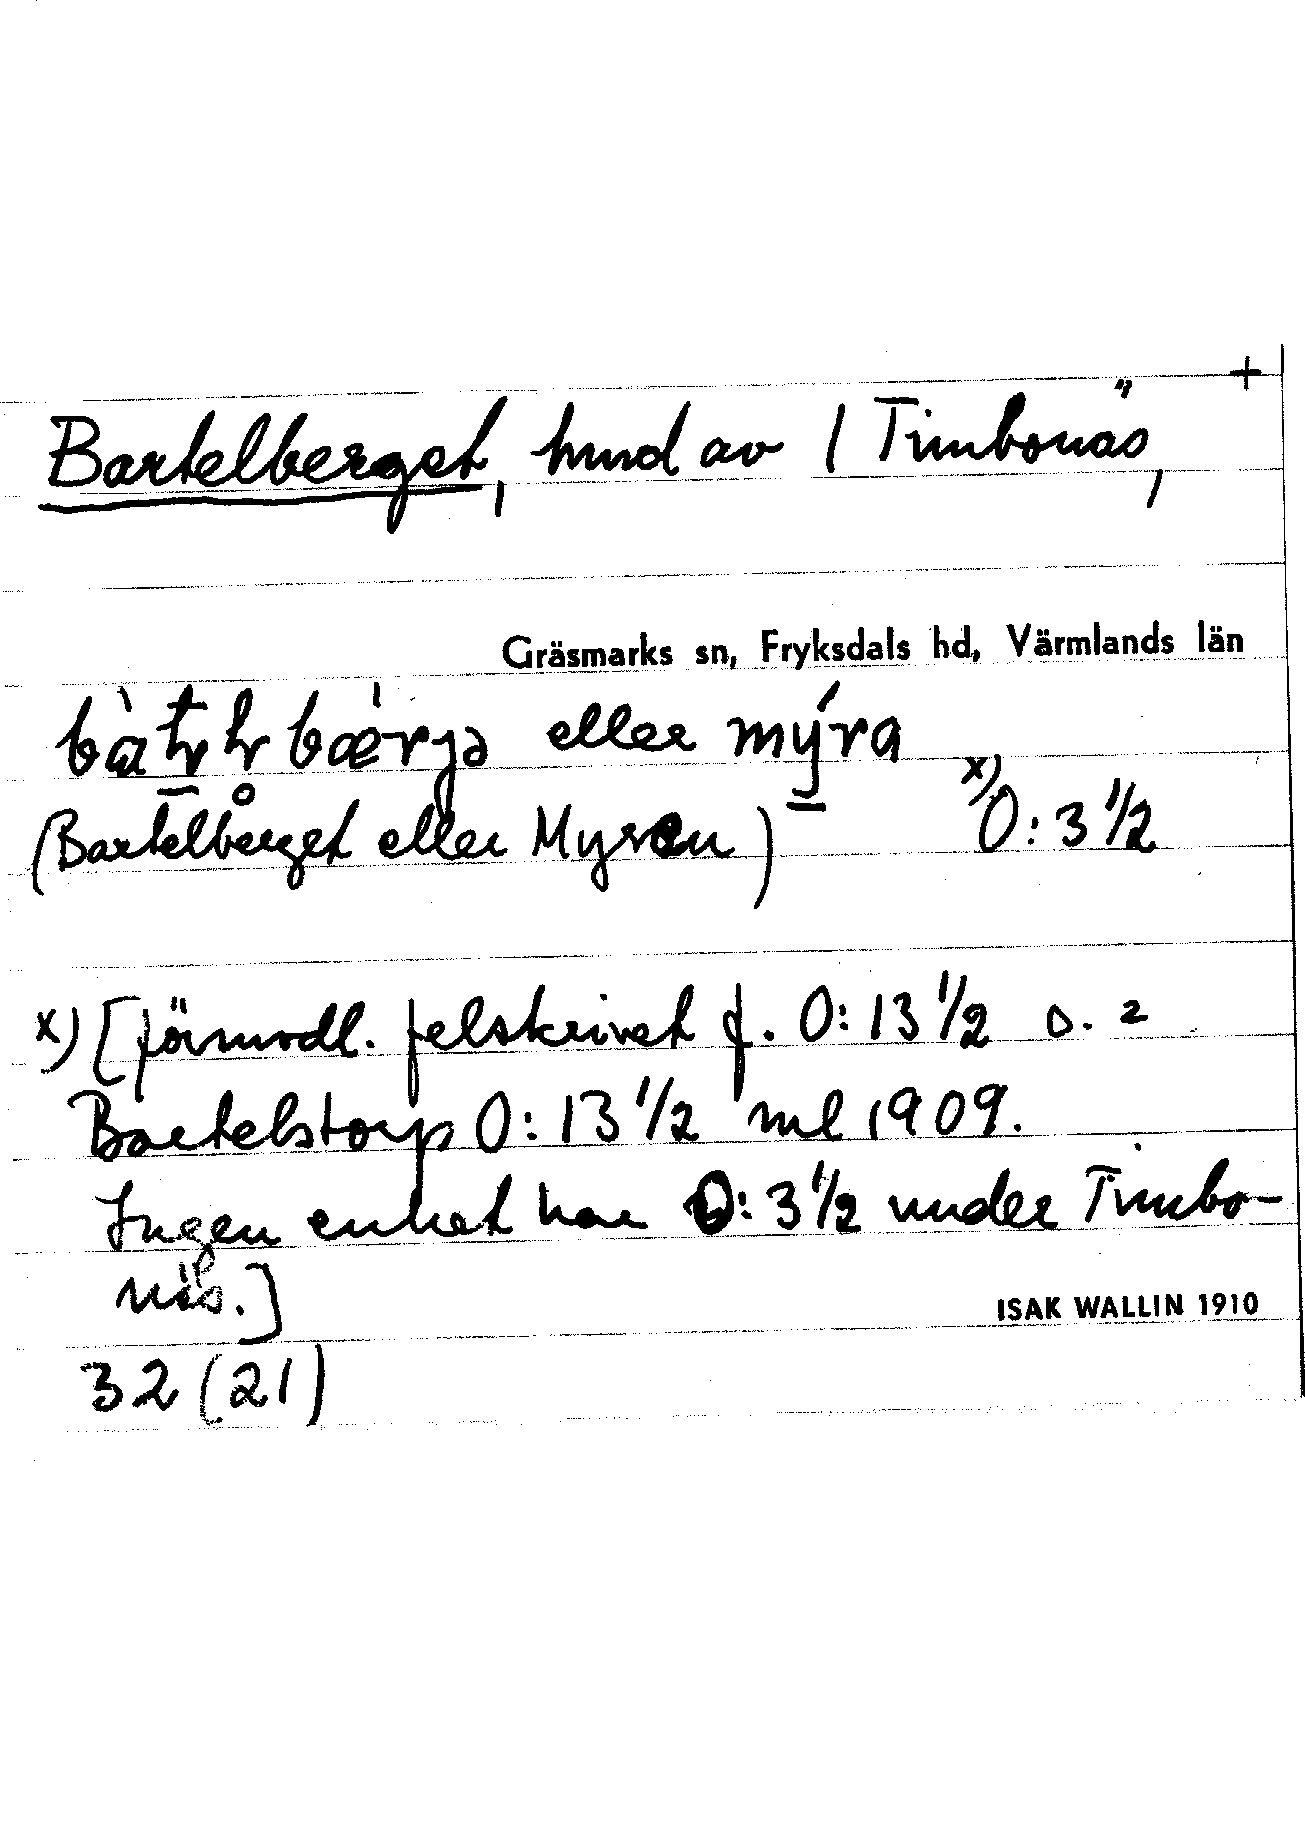 +
Bartelberget, hmd av 1 Timbonäs,
Gräsmarks sn, Fryksdals hd, Värmlands län
eller mýra
(Bartelberget eller Myren) x) 0: 3 1/2
x) [förmodl. felskrivet f. 0: 13 1/2 D. 2
Bartelstorp 0: 13 1/2 ml 1909.
Ingen enhet har 0: 3 1/2 under Timbo-
näs.]
ISAK WALLIN 1910
32 (21)